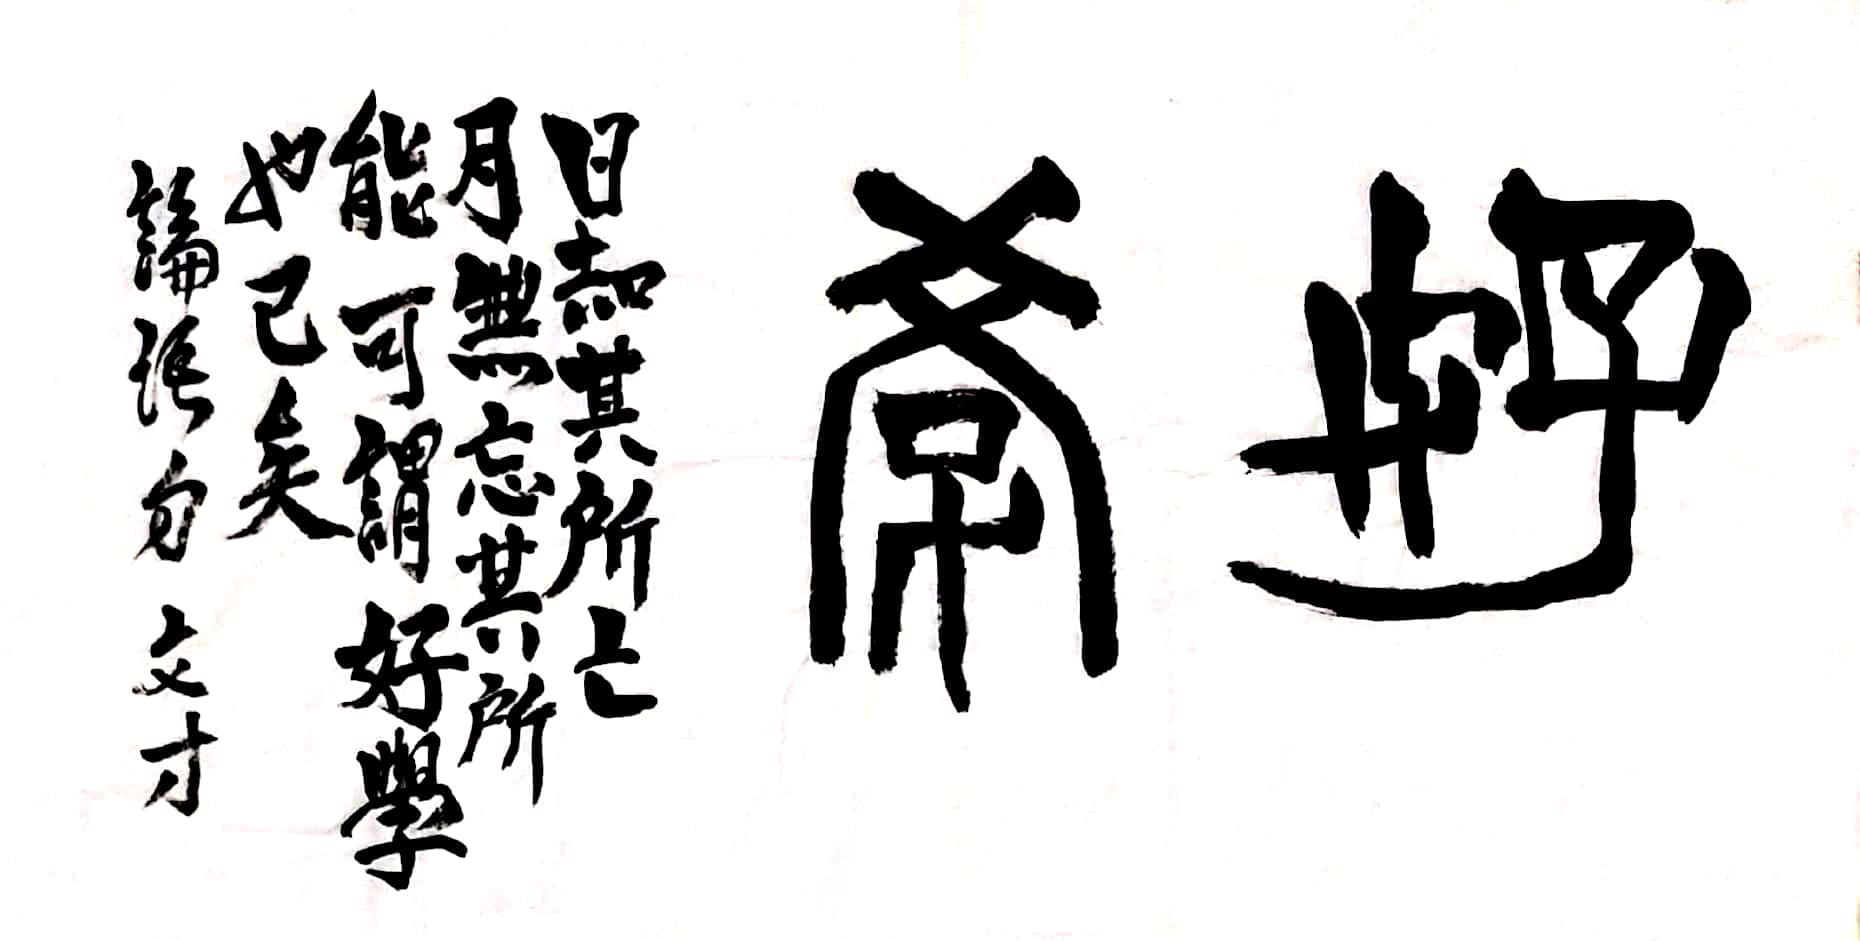 好學
日知其所亡
月無忘其所
能可謂好學
也已矣
論語句 文才